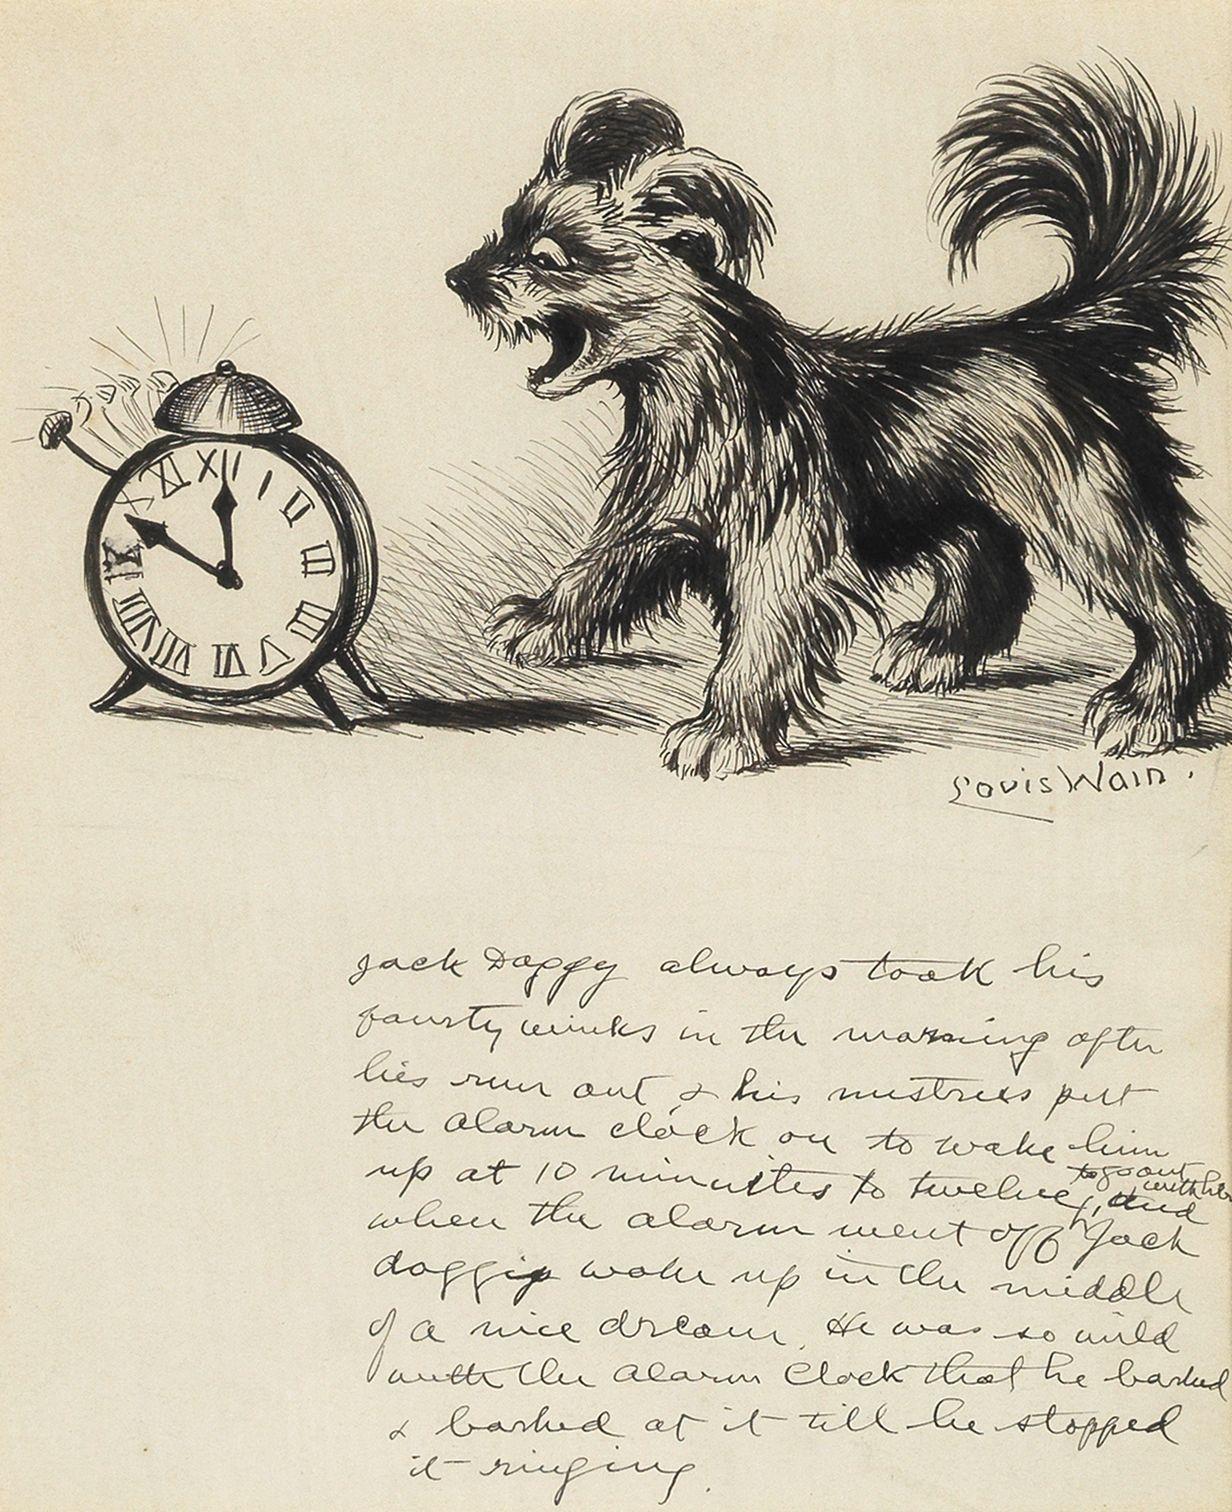 XII
I
II
III
IIII
V
VI
VII
VIII
IX
X
XI
Louis Wain.
Jack Doggy always took his
fourty winks in the morning after
his run out, & his mistress put
the alarm clock on to wake him
up at 10 minutes to twelve, to go out with her and
when the alarm went off Jack
doggie woke up in the middle
of a nice dream. He was so wild
with the alarm clock that he barked
& barked at it till he stopped
it ringing.